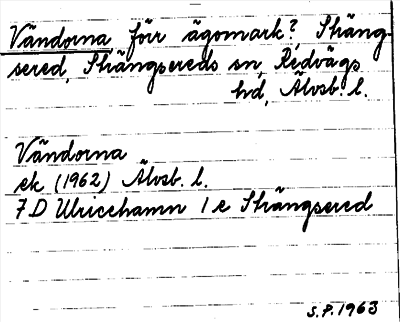 Vändorna förr ägomark? Sträng-
sered, Strängsereds sn, Redvägs
hd, Älvsb. l.
Vändorna
ek (1962) Älvsb. l.
7D Ulricehamn 1e Strängsered
S.P. 1963